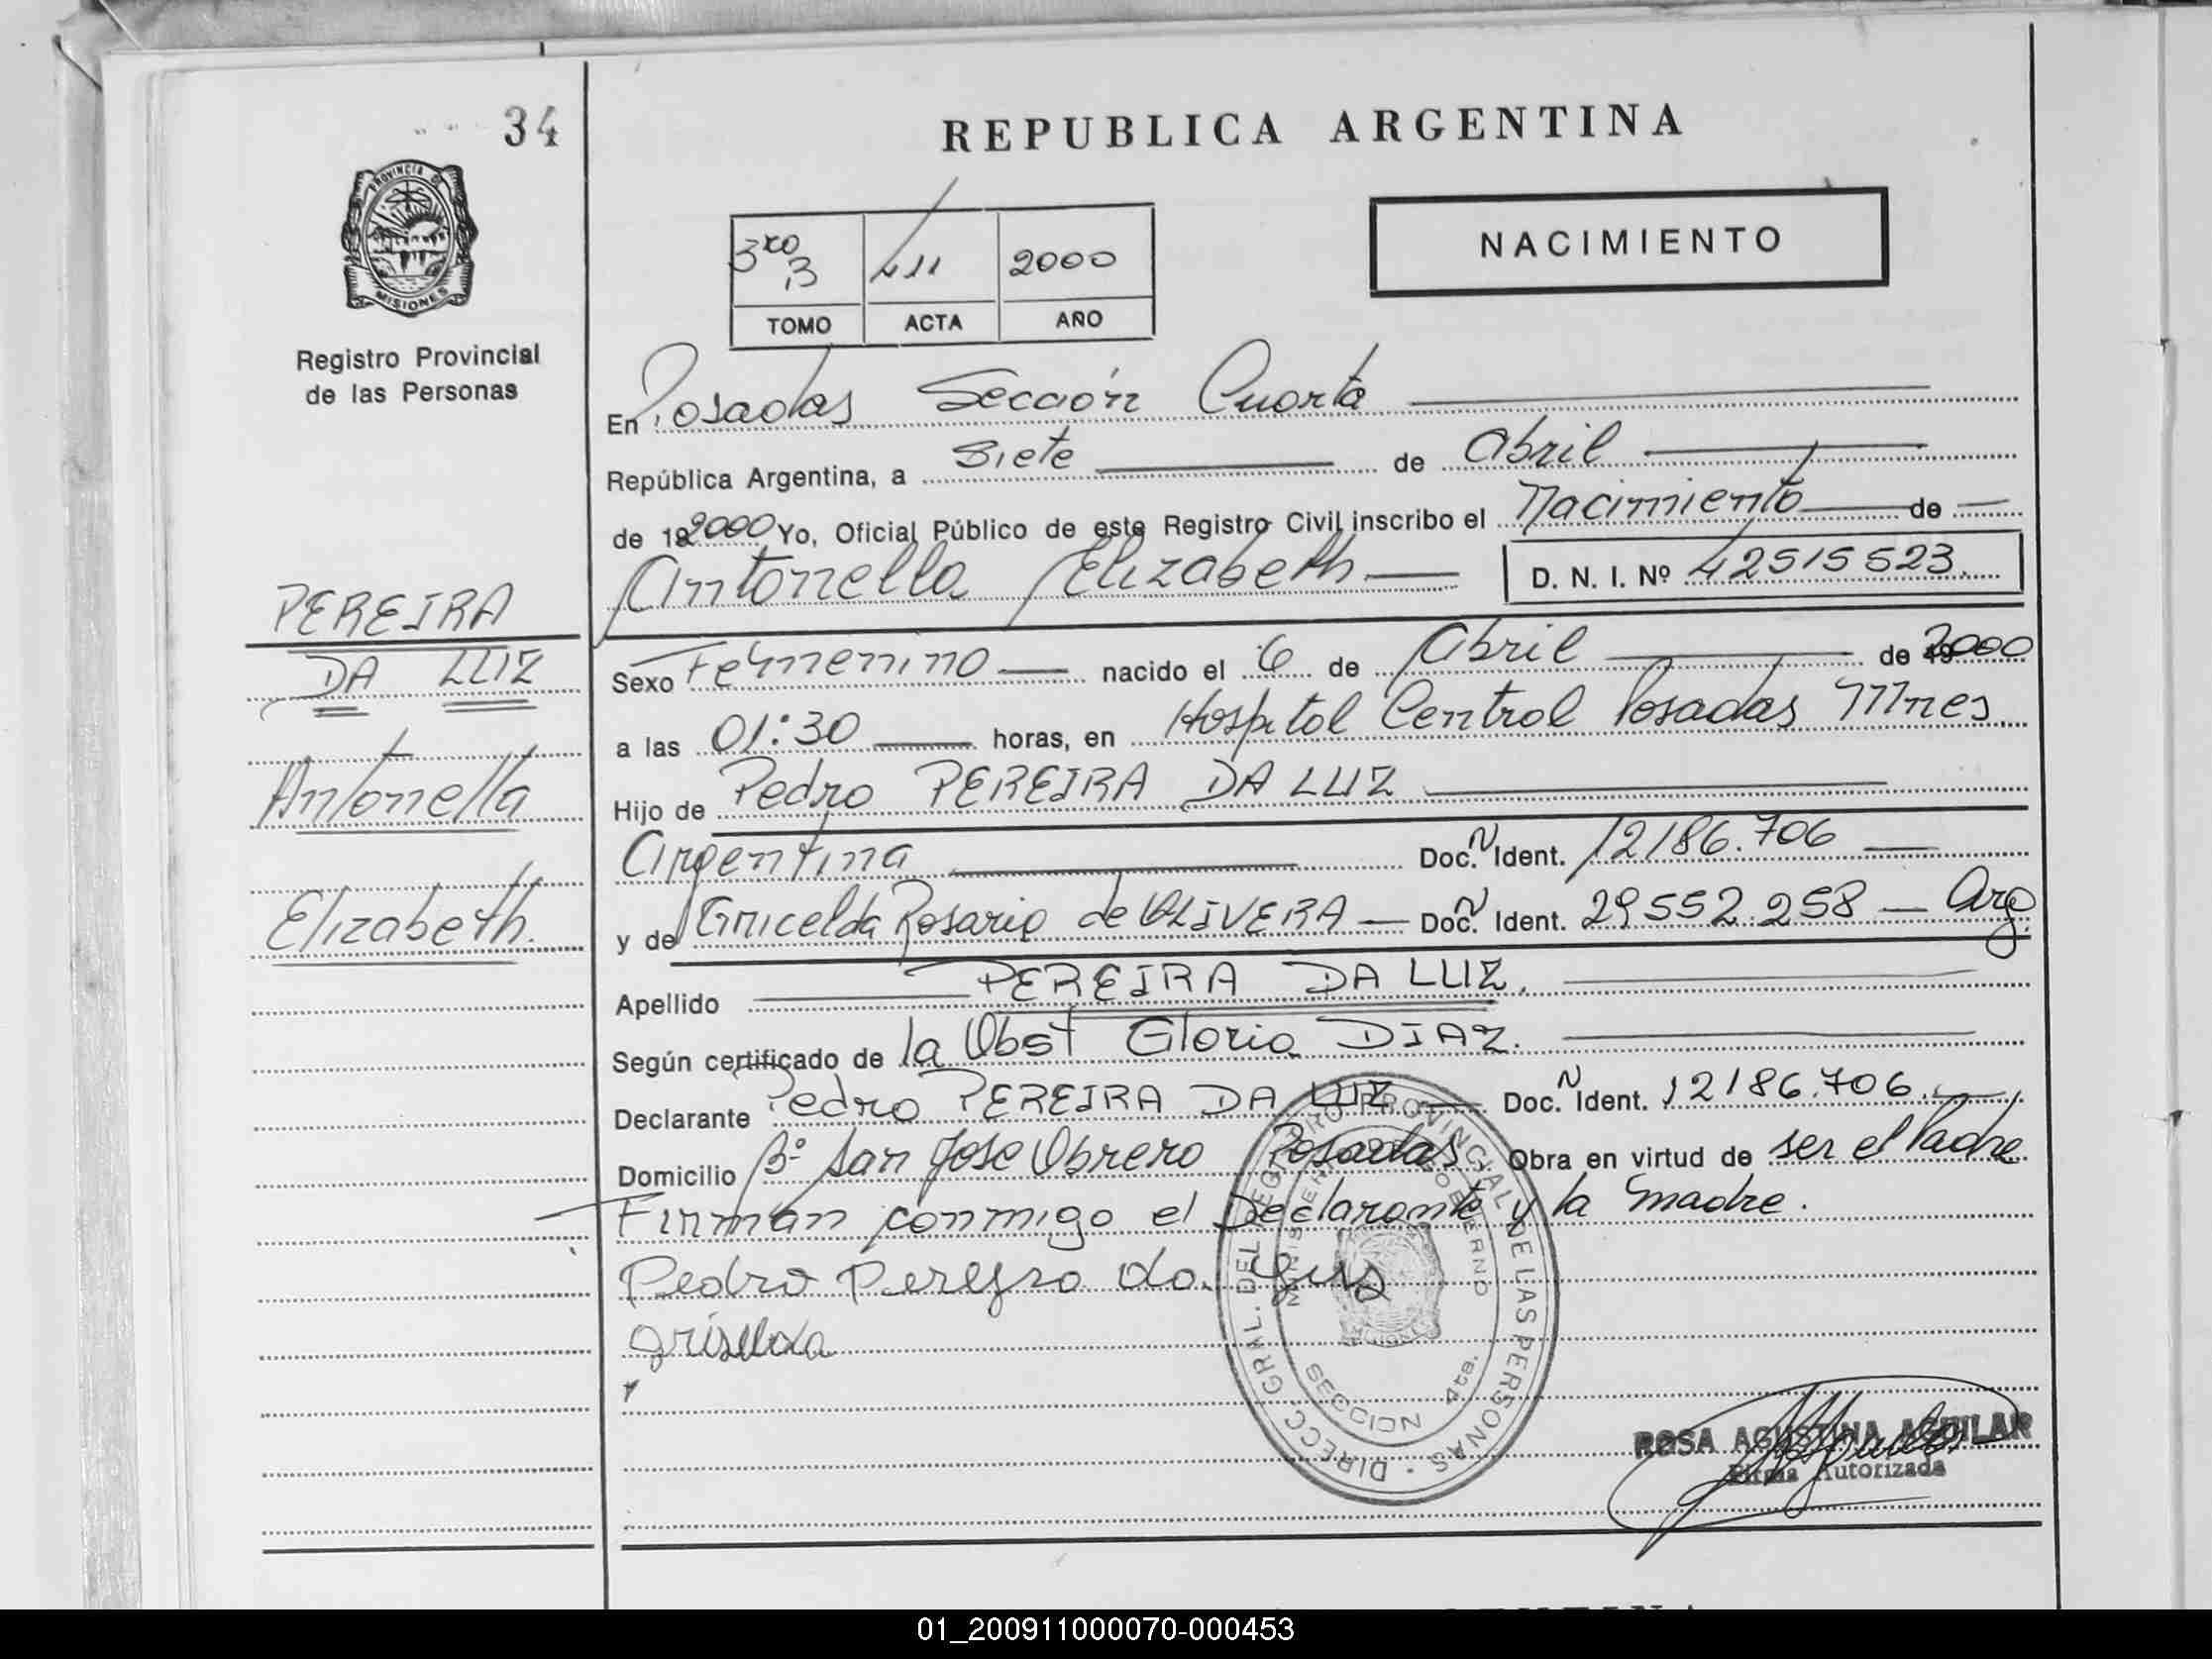 34
PROVINCIA DE
MISIONES
Registro Provincial
de las Personas
PEREIRA
DA LUZ
Antonella
Elizabeth.
REPUBLICA ARGENTINA
NACIMIENTO
3ro B 411 2000
TOMO ACTA AÑO
En Posadas Sección Cuarta
República Argentina, a Siete de Abril
de 19 2000 Yo, Oficial Público de este Registro Civil inscribo el Nacimiento de
Antonella Elizabeth D. N. I. Nº 42515523.
Sexo Femenino nacido el 6 de Abril de 19 2000
a las 01:30 horas, en Hospital Central Posadas Mnes
Hijo de Pedro PEREIRA DA LUZ
Argentina Doc. N Ident. 12186.706
y de Gricelda Rosario de OLIVERA — Doc. N Ident. 29552.258 — Arg.
Apellido PEREIRA DA LUZ.
Según certificado de la Obst Gloria DIAZ.
Declarante Pedro PEREIRA DA LUZ Doc. N Ident. 12186.706.
Domicilio Bº San Jose Obrero Posadas Obra en virtud de ser el Padre
Firman conmigo el Declarante y la madre.
Pedro Pereyra da
DIRECC. GRAL. DEL REGISTRO PROVINCIAL DE LAS PERSONAS
MINISTERIO DE GOBIERNO
SECCION 4ta.
ROSA AGUSTINA AGUILAR
Firma Autorizada
01_200911000070-000453